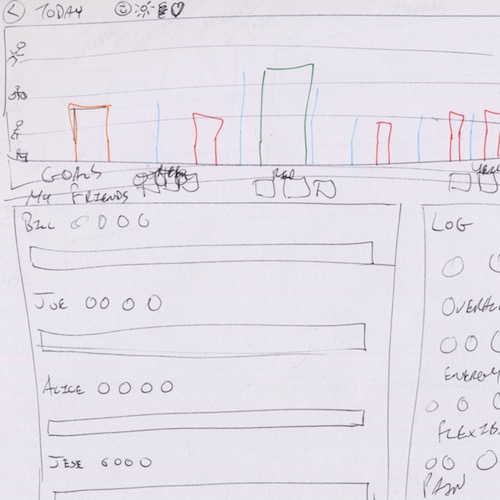 TODAY
GOALS
MY FRIENDS
BILL
JOE
ALICE
JESE
LOG
OVERAL
ENERGY
FLEXIB
PAIN